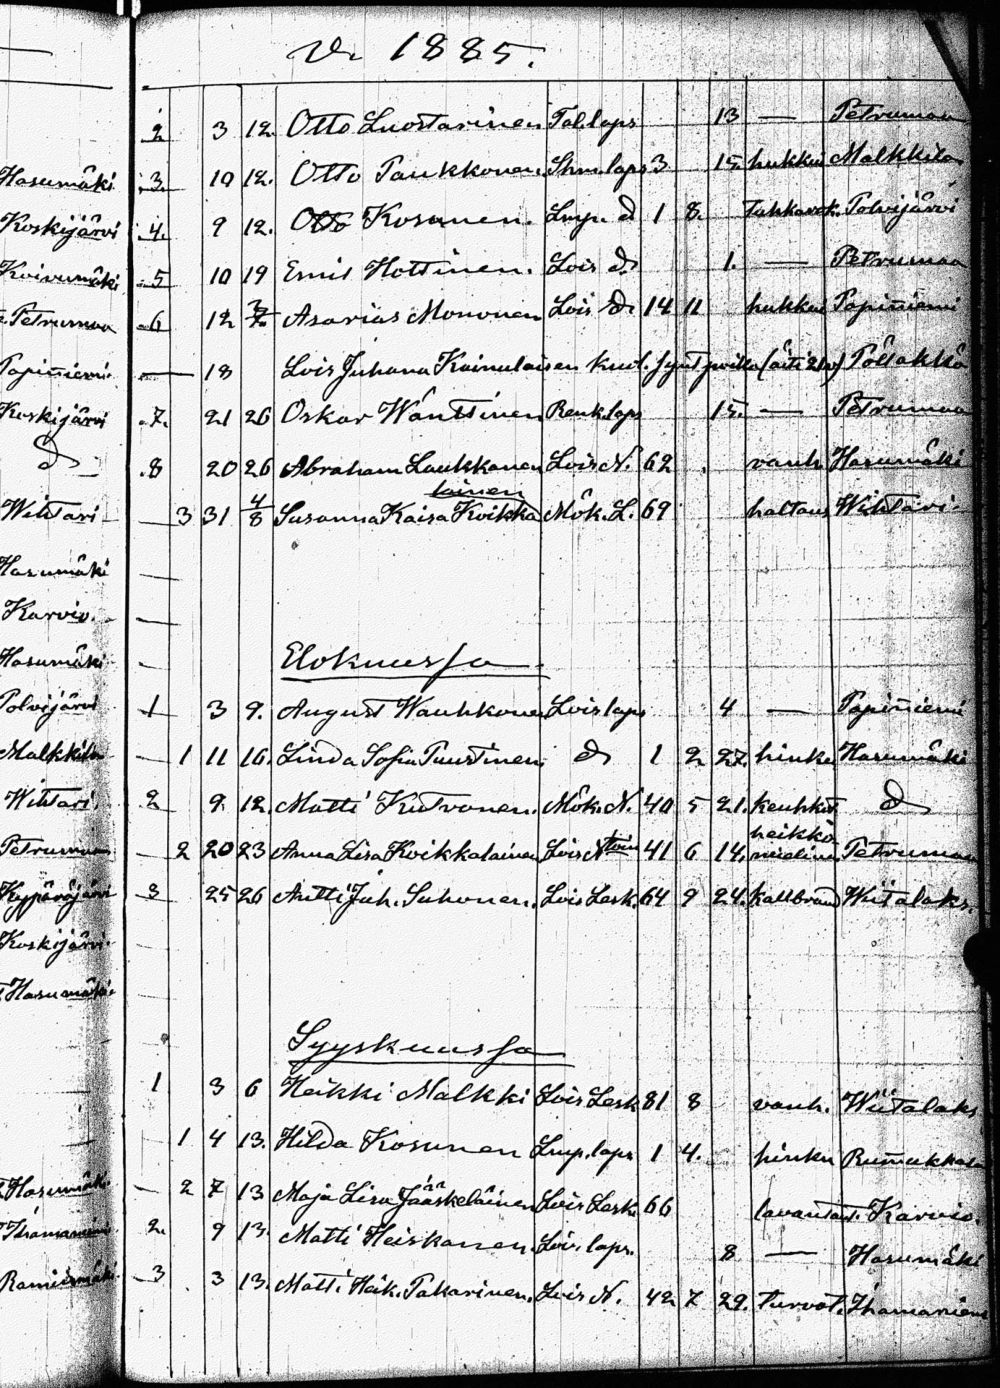 V. 1885.
2 3 12. Otto Luostarinen Tal. laps 13 — Petrumaa
Hasumäki 3 10 12. Otto Paukkonen laps 3 15. hukkui Malkkila
Koskijärvi 4. 9 12. Otto Kosunen. Lmp. d 1 8. Tuhkarok. Polvijärvi
Koivumäki 5 10 19 Emil Hottinen. Lois d. 1. — Petrumaa
Petrumaa 6 12 Asarias Mononen Lois d 14 11 hukkui Papinniemi
Papinniemi — 18 Lois Juhana Kainulaisen kuol. synt. poika (äiti) Pölläkkä
Koskijärvi 7. 21 26 Oskar Wänttinen Renk. laps 15. — Petrumaa
d 8 20 26 Abraham Laukkanen Lois N. 62 vanh. Hasumäki
lainen
Wihtari 3 31 4/8 Susanna Kaisa Koikka Mök. L. 69 haltaus Wihtari
Hasumäki
Karvio.
Hasumäki Elokuussa
Polvijärvi 1 3 9. August Wauhkonen Lois laps 4 — Papinniemi
Malkkila 1 11 16. Linda Sofia Puustinen d 1 2 27. hinku Hasumäki
Wihtari 2 9 12. Matti Kutvonen. Mök. N. 40 5 21. keuhkot. d
heikko
Petrumaa 2 20 23 Anna Lisa Koikkalainen Lois N 41 6 14. mielinen Petrumaa
Kypäräjärvi 3 25 26 Antti Juh. Suhonen. Lois Lesk. 64 9 24. kallbrand Wiitalaks.
Koskijärvi
Hasumäki
Syyskuussa
1 3 6 Heikki Malkki Lois Lesk 81 8 vanh. Wiitalaks
1 4 13. Hilda Kosunen Lmp. laps 1 4. hinku Rummukkala
Hasumäki 2 7 13 Maja Lisa Jääskeläinen Lois Lesk 66 lavantaut. Karvio.
2. 9 13. Matti Heiskanen. Lois. laps. 8 — Hasumäki
3 3 13. Matti Heik. Pakarinen. Lois N. 42 7 29. turvot. Ihamaniemi